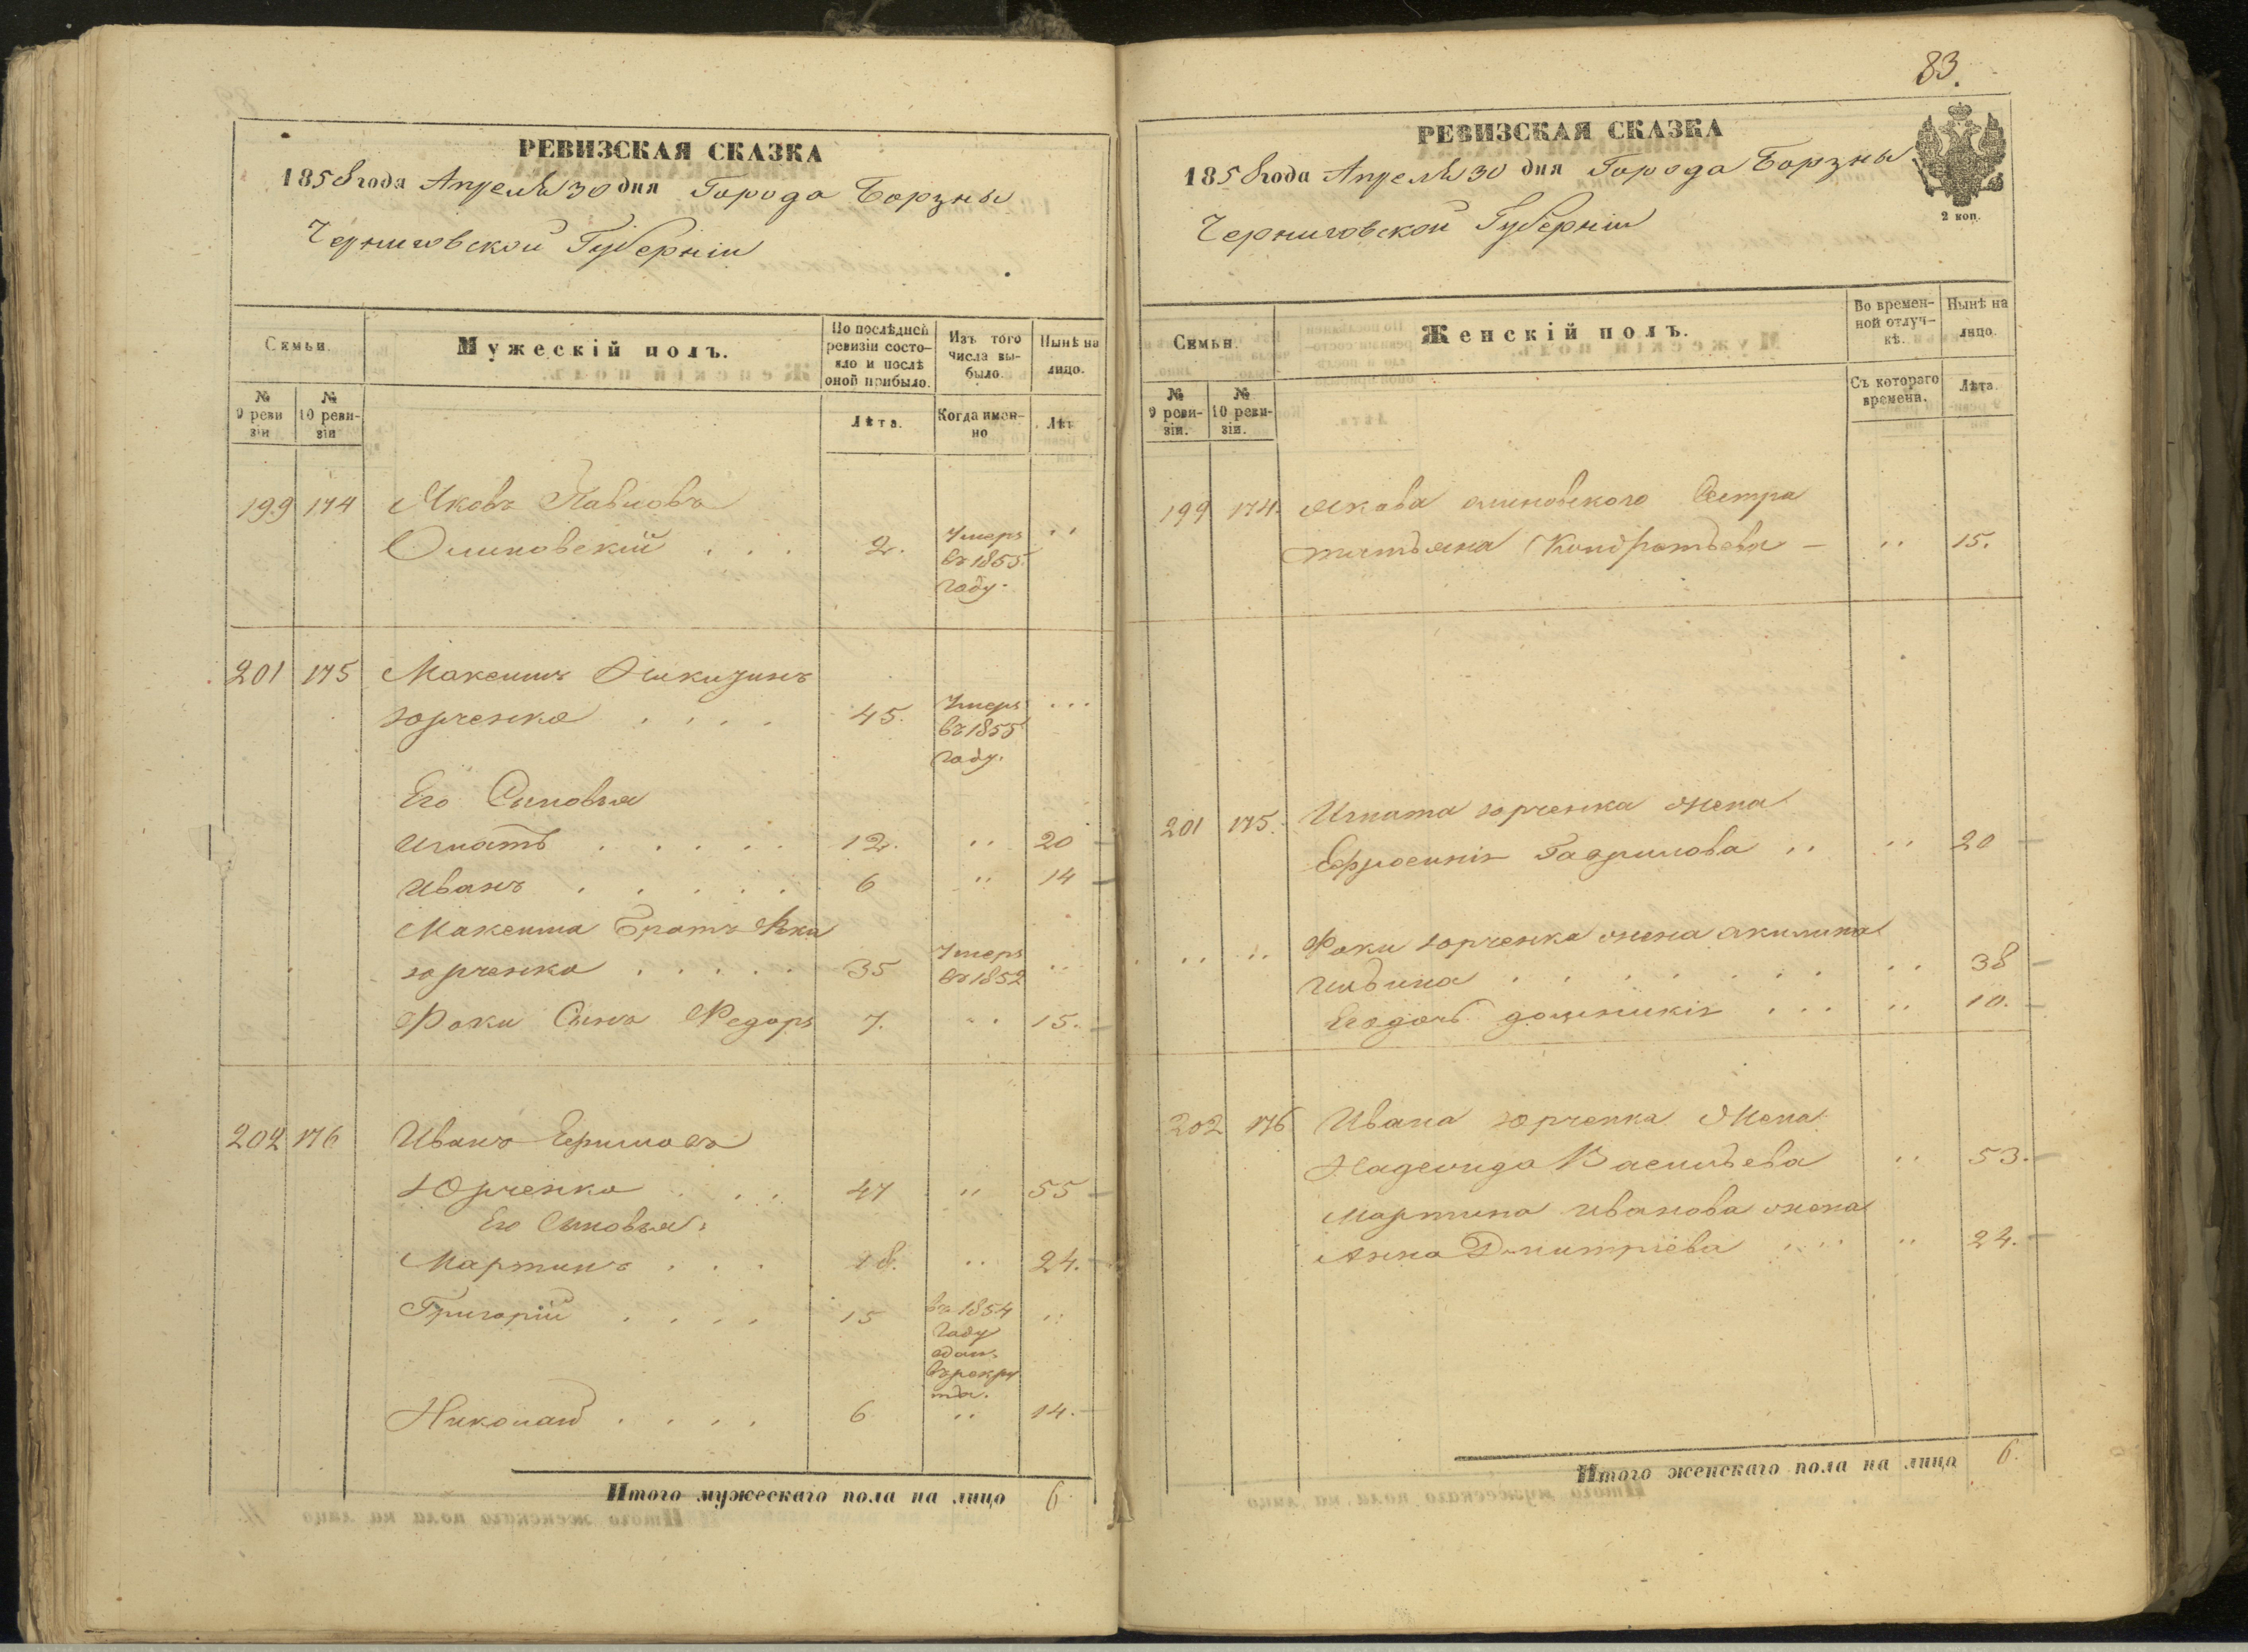 РЕВИЗСКАЯ СКАЗКА
1858 года Апреля 30 дня Города Борзны
Черниговской Губерніи
Семьи.
Мужескій полъ.
По послѣдней ревизіи состояло и послѣ оной прибыло.
Изъ того числа выбыло.
Нынѣ на лицо.
№ 9 ревизіи
№ 10 ревизіи
Лѣта.
Когда именно
Лѣт
199 174 Яковъ Павловъ
Олиновскій . . . 2. Умеръ въ 1855 году. "
201 175 Максимъ Никитинъ
Юрченко . . . . 45. Умеръ въ 1855 году. ...
Его Сыновья
Игнатъ . . . . . 12. " 20 -
Иванъ . . . . . 6 " 14 -
Максима братъ Фока
Юрченко . . . . . 35 Умеръ въ 1852 "
Фоки Сынъ Федоръ 7. " 15. -
202 176 Иванъ
Юрченко . . . 47 " 55 -
Его Сыновья:
Мартинъ . . . 18. " 24. -
Григорій . . . . 15 въ 1854 году сданъ въ рекруты. "
Николай . . . . 6 " 14. -
Итого мужескаго пола на лицо 6
83.
РЕВИЗСКАЯ СКАЗКА
1858 года Апреля 30 дня Города Борзны
Черниговской Губерніи
2 коп.
Семьи.
Женскій полъ.
Во временной отлучкѣ.
Нынѣ на лицо.
№ 9 ревизіи.
№ 10 ревизіи.
Съ котораго времени.
Лѣта.
199 174. Якова Олиновского Сестра
татьяна Кондратьева - " 15.
201 175. Игната юрченка жена
Ефросинія Гаврилова " " 20 -
" " Фоки юрченка жена акилина
Ильина . . . . . . . " 38 -
Его дочь домникія . . . " 10. -
202 176 Ивана юрченка Жена
Надежда Васильева " 53. -
Мартина иванова жена
Анна Дмитріева . . . " 24. -
Итого женскаго пола на лицо 6.